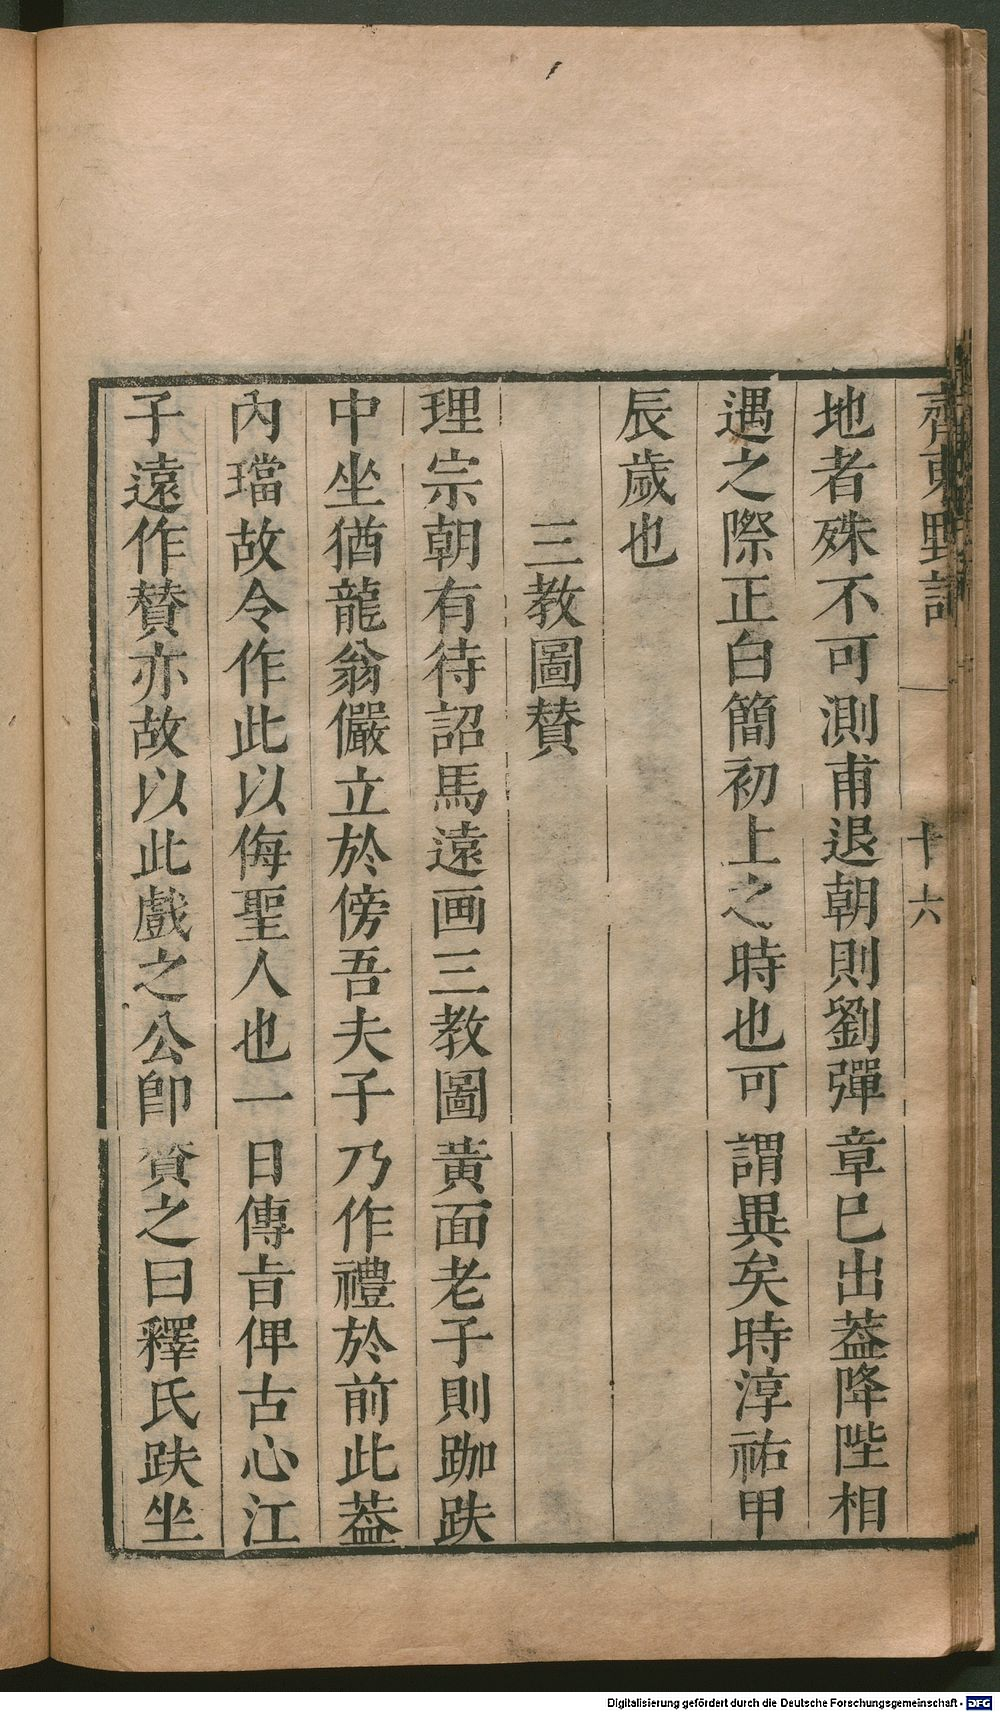 齊東野語
十六
地者殊不可測甫退朝則劉彈章巳出葢降陛相
遇之際正白簡初上之時也可謂異矣時淳祐甲
辰歲也
三教圖贊
理宗朝有待詔馬遠画三教圖黄面老子則跏趺
中坐猶龍翁儼立於傍吾夫子乃作禮於前此葢
內璫故令作此以侮聖人也一日傳旨俾古心江
子遠作贊亦故以此戲之公卽贊之曰釋氏趺坐
Digitalisierung gefördert durch die Deutsche Forschungsgemeinschaft - DFG